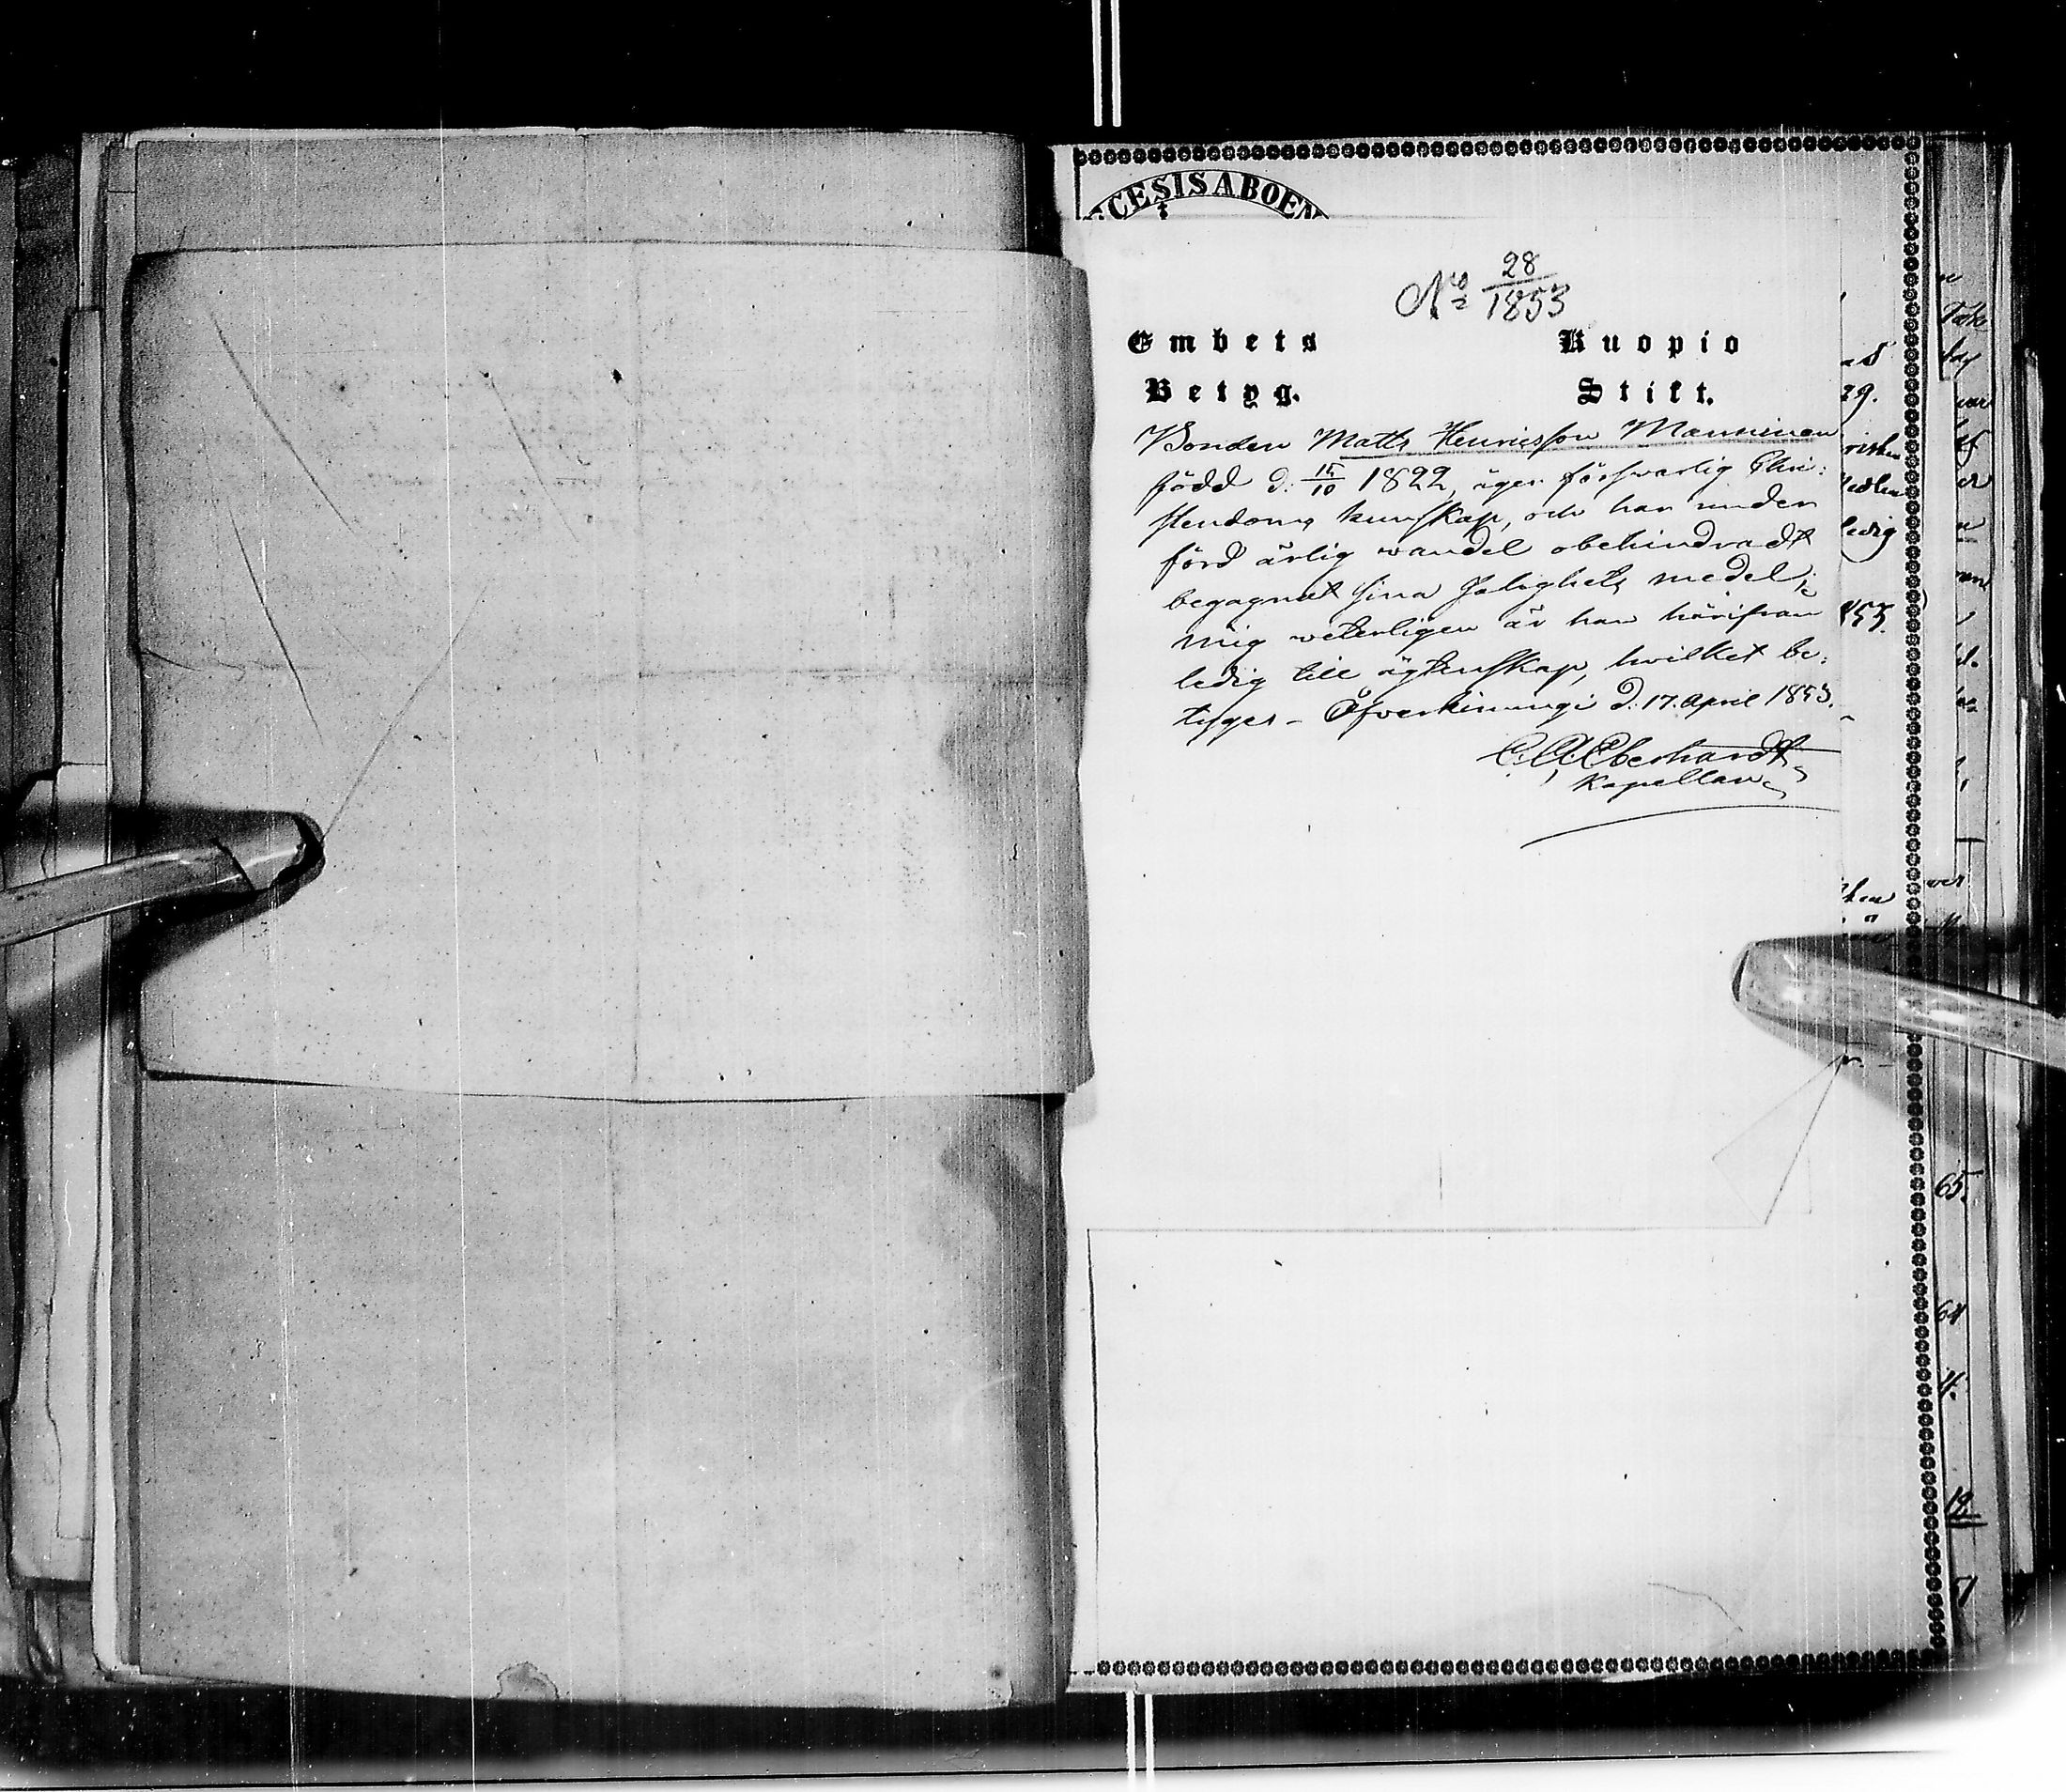 CESISABOEN
No 28/1853
Embets Kuopio
Betyg. Stift.
Bonden Matts Henricsson Manninen
född d. 15/10 1822, äger försvarlig Chri:
stendoms kunskap, och har under
förd ärlig wandel obehindradt
begagnat sina Salighets medel;
mig veterligen är han härifran
ledig till ägtenskap, hvilket be:
tyges - Öfverkiimingi d. 17. April 1853.
C. A. Eberhardt
Kapellan
29.
ledig
65.